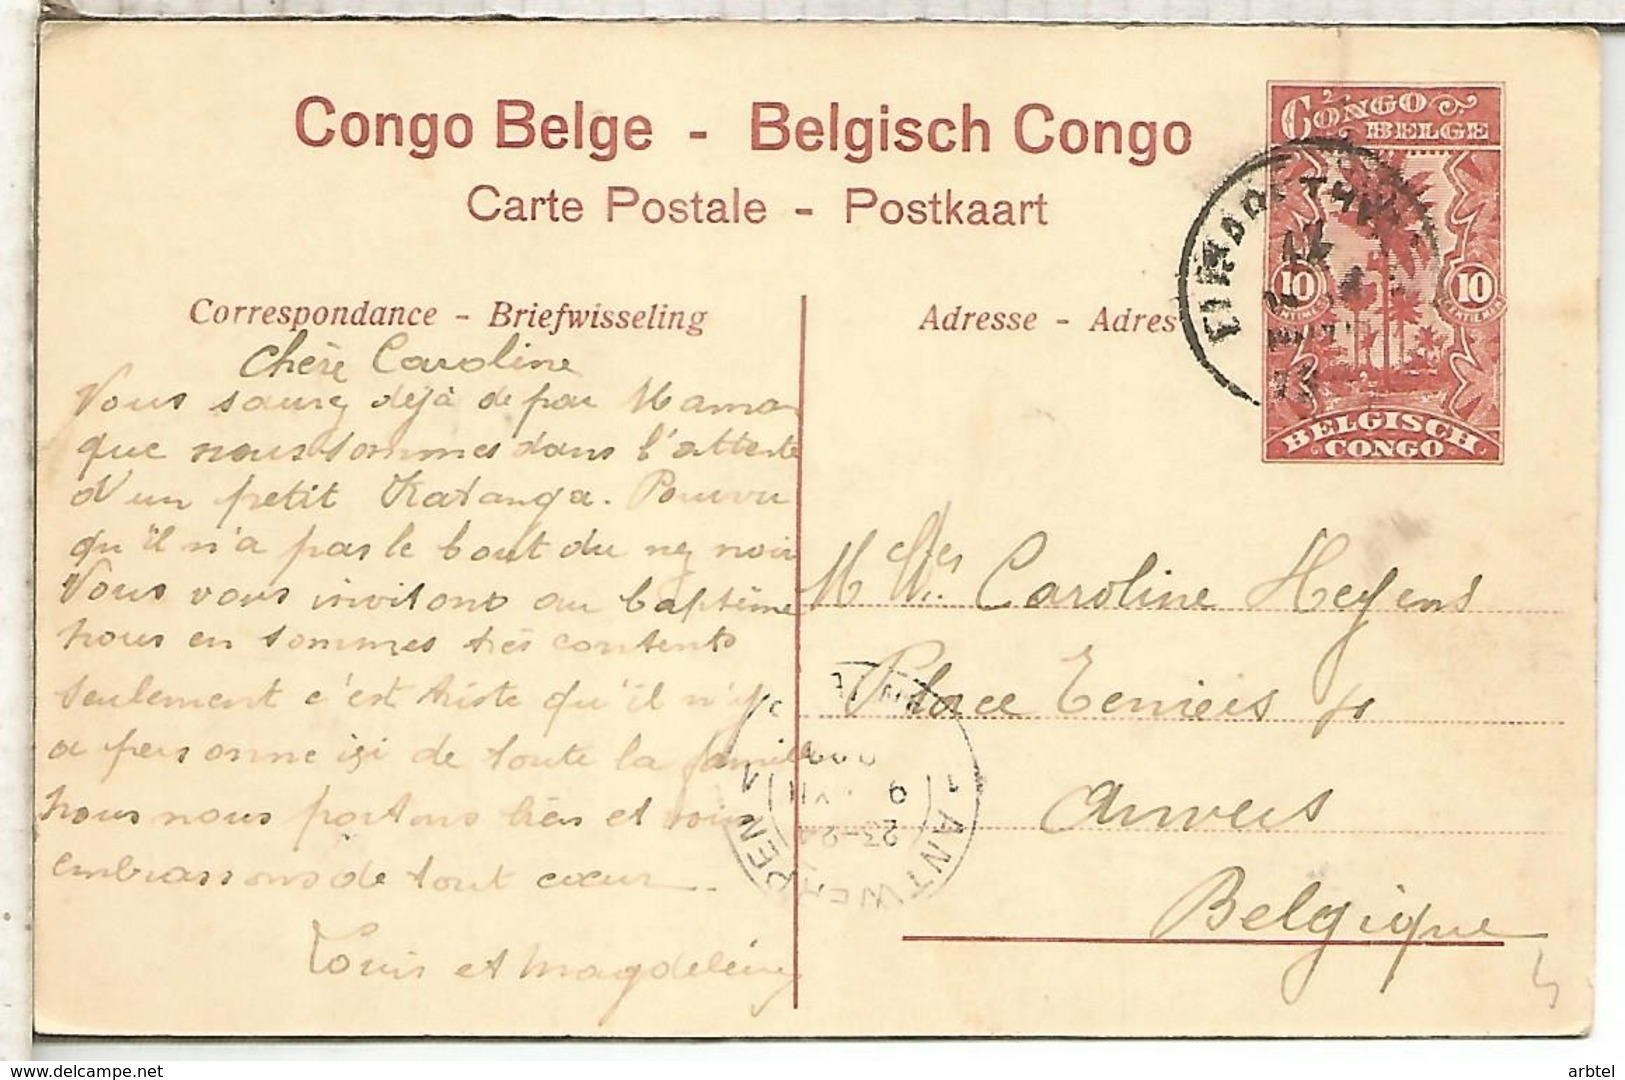 Congo Belge - Belgisch Congo
Carte Postale - Postkaart
CONGO BELGE
10 10
BELGISCH CONGO
ELISABETHVILLE
Correspondance - Briefwisseling
Adresse - Adres
Chère Caroline
Vous saurez déjà depar Maman
que nous sommes dans l'attente
d'un petit Katanga. Pourvu
qu'il n'a pas le bout du nez noir
Vous vous invitons au baptême
nous en sommes très contents
seulement c'est triste qu'il n'y
a personne izi de toute la famille
nous nous portons bien et vous
embrassons de tout cœur.
Louis et Magdeleine
Caroline Heyens
Place Teniers
Anvers
Belgique
1 ANTWERPEN 1
9
23-24
delcampe.net
arbtel